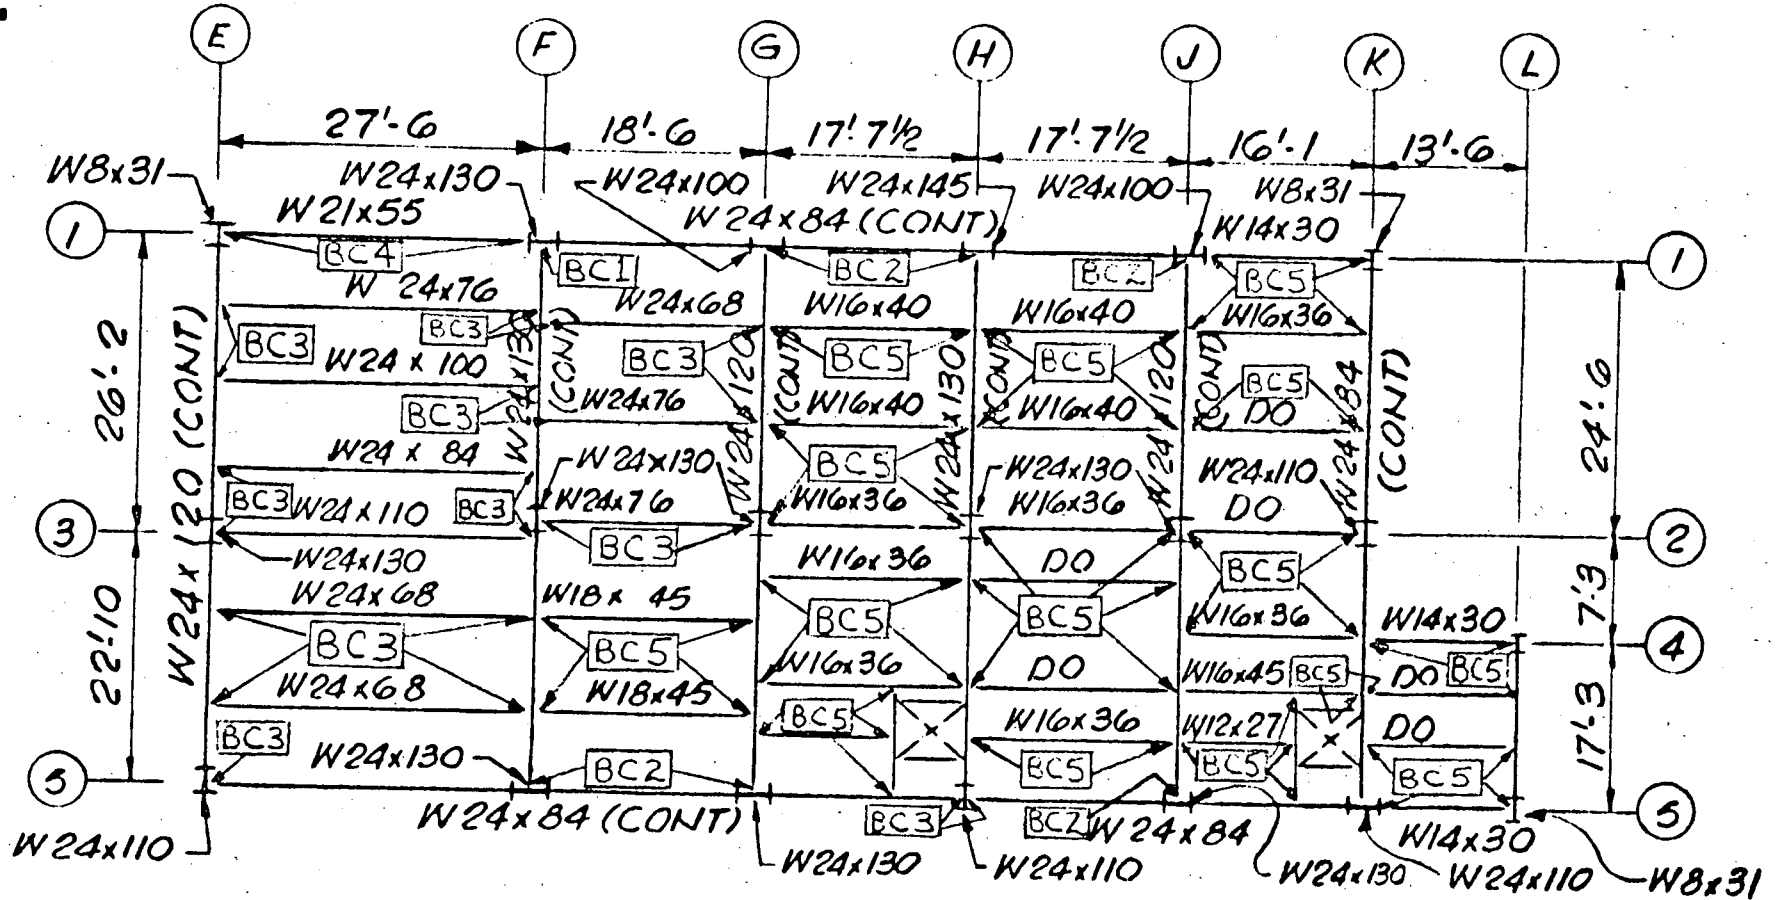 E F G H J K L
27'-6 18'-6 17'-7½ 17'-7½ 16'-1 13'-6
W8x31 W24x130 W24x100 W24x145 W24x100 W8x31
W21x55 W24x84 (CONT) W14x30
1 BC4 BC1 BC2 BC2 BC5 1
W 24x76 W24x68 W16x40 W16x40 W16x36
BC3 BC3 BC3 BC5 BC5 BC5
W24 x 100 W24x130 (CONT) W24x120 (CONT) W24x130 (CONT) W24x120 (CONT) W24x84 (CONT)
26'-2 W24x120 (CONT) 24'-6
BC3 W24x76 W16x40 W16x40 DO
W24 x 84 W24x130 BC5 W24x130 W24x110
BC3 W24x110 BC3 W24x76 W16x36 W16x36 DO
3 BC3 2
W24x130 W16x36 DO BC5
W24x68 W18x 45 7'-3
22'-10 BC3 BC5 BC5 BC5 W16x36 W14x30
4
W24x68 W18x45 W16x36 DO W16x45 BC5 DO BC5
BC5 W16x36 W12x27 DO 17'-3
BC3 W24x130 BC2 BC5 BC5 BC5
5 5
W24x84 (CONT) BC3 BC2 W24x84 W14x30
W24x110 W24x130 W24x110 W24x130 W24x110 W8x31